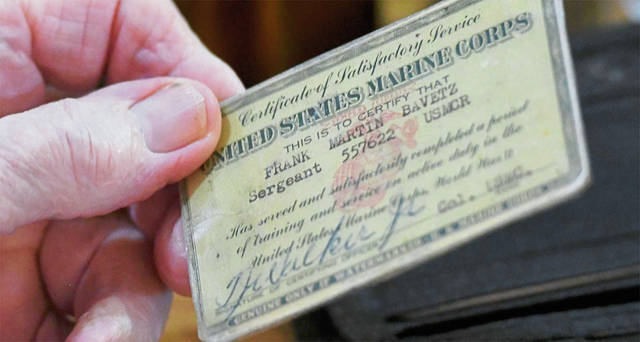 Certificate of Satisfactory Service
UNITED STATES MARINE CORPS
THIS IS TO CERTIFY THAT
FRANK MARTIN BAVETZ
Sergeant 557622 USMCR
Has served and satisfactorily completed a period
of training and service in active duty in the
United States Marine Corps. World War II
Col. USMC.
SIGNATURE OF CERTIFYING OFFICER
GENUINE ONLY IF WATERMARKED U.S. MARINE CORPS